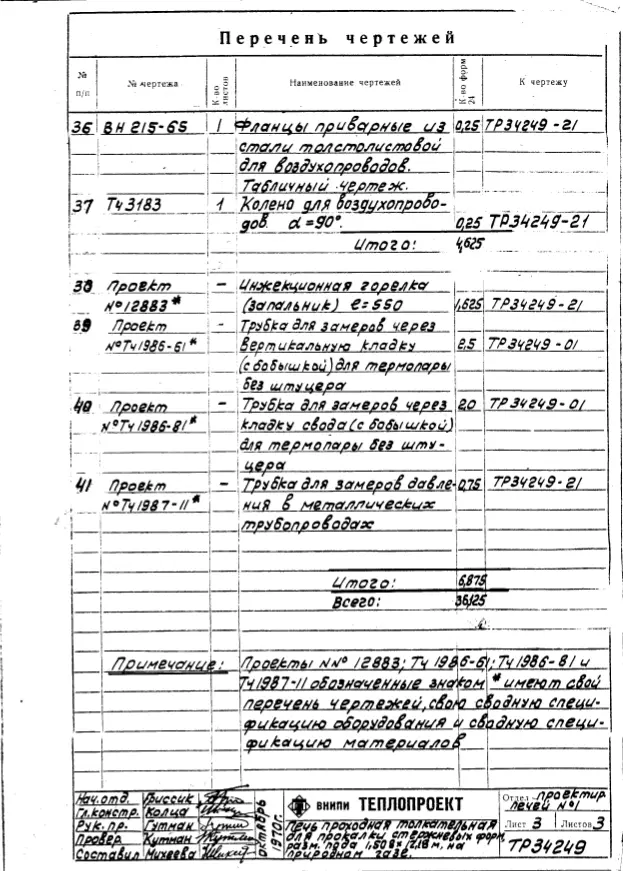 Перечень чертежей
№ п/п № чертежа К-во листов Наименование чертежей К-во форм 24 К чертежу
36 ВН 215-65 1 Фланцы приварные из 0,25 ТР34249-21
стали толстолистовой
для воздухопроводов.
Табличный чертеж.
37 ТЧ3183 1 Колена для воздухопрово-
дов. α=90°. 0,25 ТР34249-21
Итого: 4,625
38 Проект — Инжекционная горелка
№12883* (запальник) ℓ=550 1,525 ТР34249-21
39 Проект - Трубка для замеров через
№ТЧ1986-61* вертикальную кладку 2,5 ТР34249-01
(с бобышкой) для термопары
без штуцера
40 Проект — Трубка для замеров через 2,0 ТР34249-01
№ТЧ1986-81* кладку свода (с бобышкой)
для термопары без шту-
цера
41 Проект — Трубка для замеров давле- 0,75 ТР34249-21
№ТЧ1987-11* ния в металлических
трубопроводах
Итого: 6,875
Всего: 36,125
Примечание: Проекты №№ 12883; ТЧ 1986-61; ТЧ1986-81 и
ТЧ1987-11 обозначенные знаком * имеют свой
перечень чертежей, свою сводную специ-
фикацию оборудования и сводную специ-
фикацию материалов
Нач.отд. Гриссик
Гл.констр. Колца
Рук.пр. Гутман
Провер. Кутман
Составил Михеева
октябрь 1970г.
ВНИПИ ТЕПЛОПРОЕКТ
Печь проходная толкательная
для прокалки стержневых форм
разм. пода 1,508 х 12,18 м. на
природном газе.
Отдел проектир.
печей №1
Лист 3 Листов 3
ТР34249